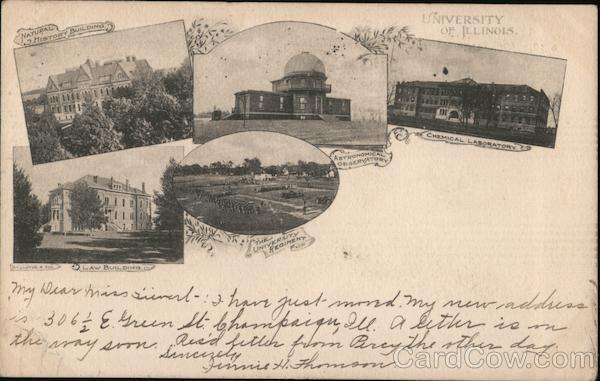 NATURAL
HISTORY BUILDING.
UNIVERSITY
OF ILLINOIS.
CHEMICAL LABORATORY
ASTRONOMICAL
OBSERVATORY
THE
UNIVERSITY
REGIMENT
LAW BUILDING
My Dear Miss Sievert-: I have just moved. My new address
is 306½ E. Green St. Champaign, Ill. A letter is on
the way soon. Rec'd letter from the other day.
Sincerely
Jennie H. Thomson.
CardCow.com